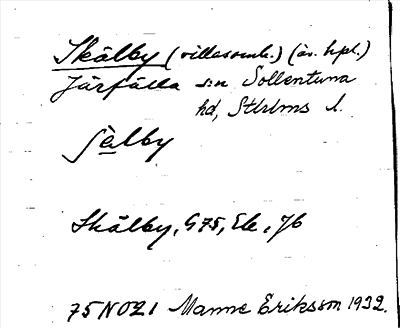 Skälby (villasamh.) (äv. hpl.)
Järfälla s:n Sollentuna
hd, Sthlms l.
Sèlby
Skälby, G75, Ek, J6
75NO21 Manne Eriksson 1932.